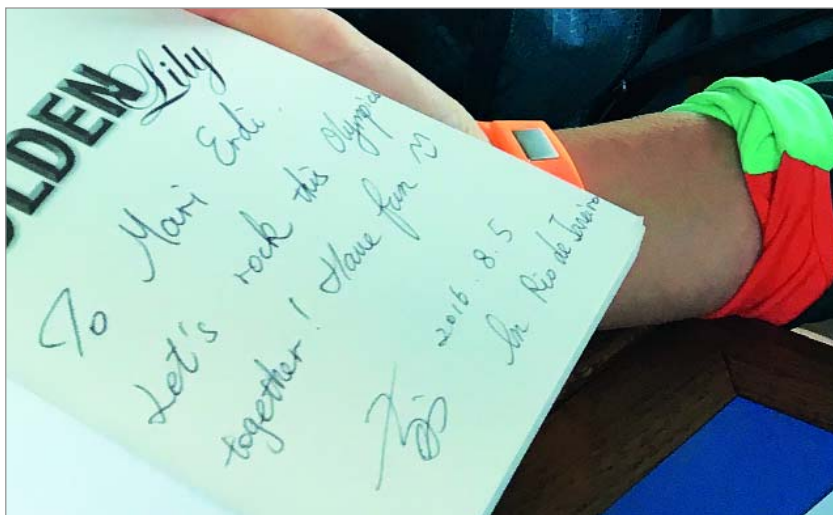 OLDEN
Lily
To Mari Erdi.
Let's rock this Olympics
together! Have fun
2016.8.5
In Rio de Janeiro